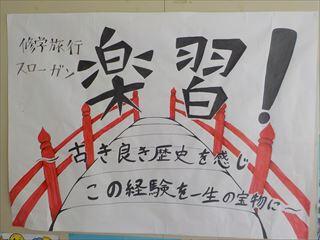 修学旅行
スローガン
楽習!
古き良き歴史を感じ
この経験を一生の宝物に〜